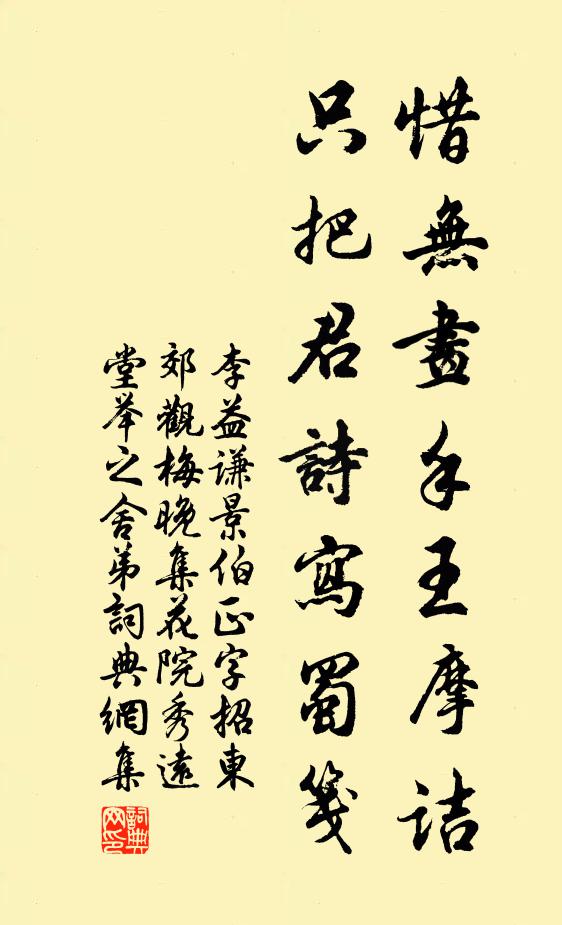 惜無畫手王摩詰
只把君詩寫蜀箋
李益謙景伯正字招東
郊觀梅晚集花院秀遠
堂举之舍弟詞典網集
詞典网印